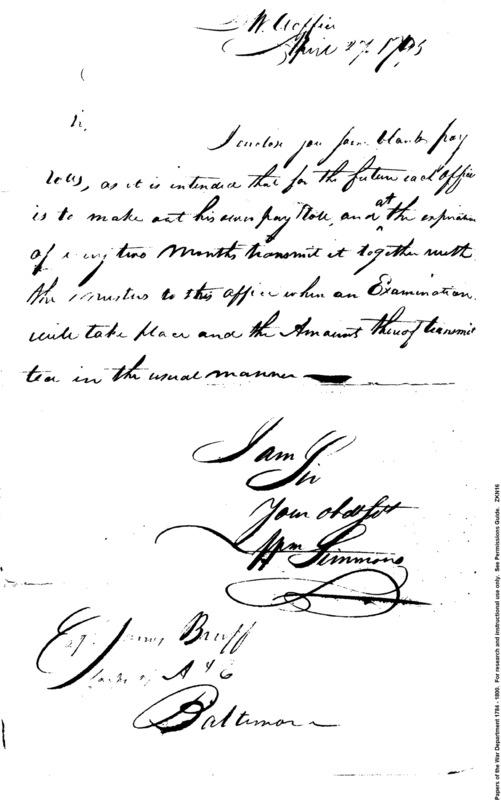 W. Office
April 27. 1795
I enclose you some blank pay
rolls, as it is intended that for the future each office
is to make out his own pay Roll, and at the expiration
of every two Months transmit it together with
the musters to this office when an Examination
will take place and the Amount thereof transmit
ted in the usual manner
I am
Sir
Your obdt Sert
Wm Simmons
Capt James Bruff
of A & E
Baltimore
Papers of the War Department 1784 - 1800. For research and instructional use only. See Permissions Guide. ZKN16